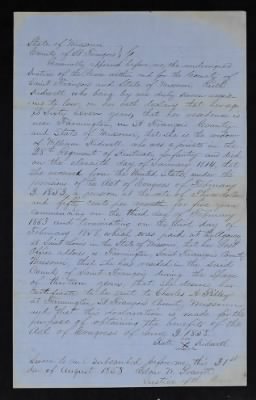 State of Missouri
County of St François } SS
Personally appeared before me, the undersigned
Justice of the Peace within and for the County of
Saint François and State of Missouri Ruth
Sidwell who being by me duly sworn accord-
ing to law, on her oath declares that her age
is Sixty Seven years, that her residence is
near Farmington in St François County
and State of Missouri, that she is the widow
of Sidwell who was a private in the
28th Regiment of Kentucky Infantry and died
on the eleventh day of 1814, that
she received from the United States under the
provisions of the Act of Congress of February
3 1853, a pension at the rate of
and fifty cents per month for five years
commencing on the third day of February
1853 and terminating on the third day of
February 1858 which was paid at the Agency
at Saint Louis in the State of Missouri that her Post
Office address is Farmington, Saint François County
Missouri that she has resided in the
County of Saint François during the space
of thirteen years, that she desires her
certificate to be sent to Charles
at Farmington St François County Missouri
and that this declaration is made for the
purpose of obtaining the benefits of the
Act of Congress of June 3 1858
Ruth X Sidwell
Sworn to and subscribed before me, this 21st
day of August 1858
Justice of the